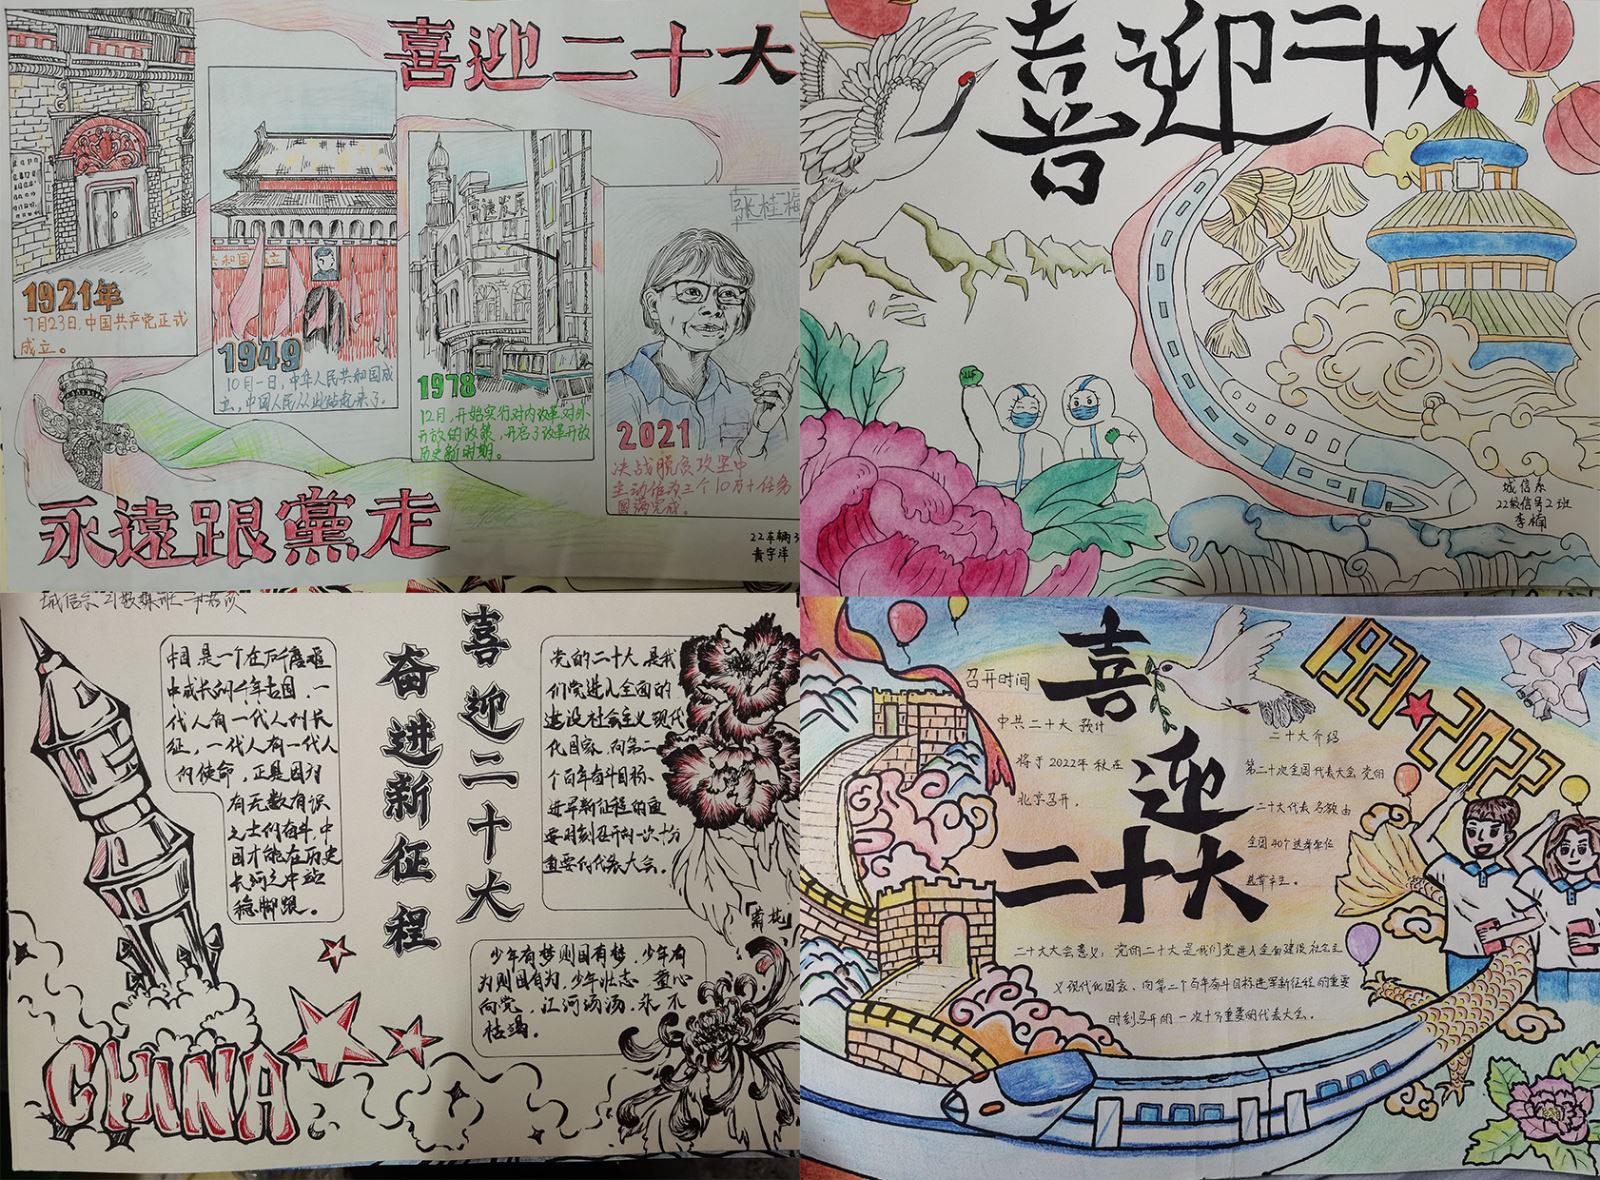 喜迎二十大
张桂梅
高速发展
共和国成立
1921年
7月23日,中国共产党正式
成立。
1949
10月一日,中华人民共和国成
立,中国人民从此站起来了。
1978
12月,开始实行对内改革对外
开放的政策,开启了改革开放
历史新时期。
2021
决战脱贫攻坚中
主动作为三个10万+任务
圆满完成。
永遠跟黨走
22车辆3
黄宇洋
喜迎二十大
诚信东
22级信号2班
李楠
喜迎二十大
奋进新征程
中国是一个在历千磨难
中成长的千年古国,一
代人有一代人的长
征,一代人有一代人
的使命,正是因为
有无数有识
之士的奋斗,中
国才能在历史
长河之中站
稳脚跟。
党的二十大,是我
们党进入全面的
建设社会主义现代
化国家、向第二
个百年奋斗目标、
进军新征程的重
要时刻召开的一次十分
重要的代表大会。
「菊花」
少年有梦则国有梦,少年有
为则国有为,少年壮志,童心
向党,江河汤汤,永不
枯竭。
CHINA
喜迎二十大
1921★2022
召开时间
中共二十大预计
将于2022年秋在
北京召开。
二十大介绍
第二十次全国代表大会党的
二十大代表名额由
全国40个选举单位
选举产生。
二十大大会意义:党的二十大是我们党进入全面建设社会主
义现代化国家、向第二个百年奋斗目标进军新征程的重要
时刻召开的一次十分重要的代表大会。